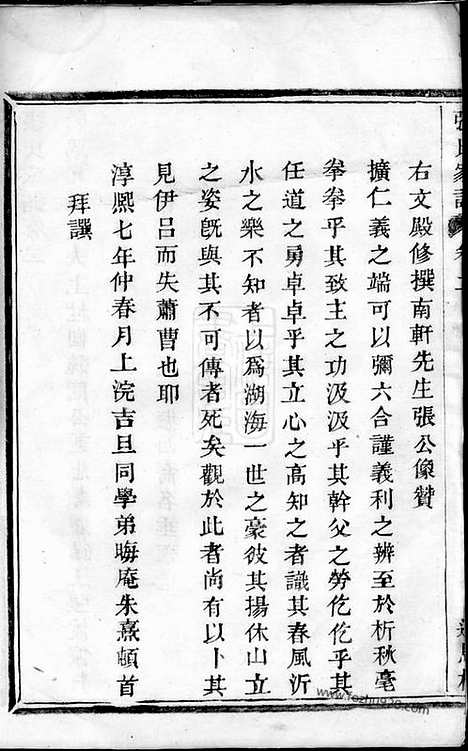 右文殿修撰南軒先生張公像贊
擴仁義之端可以彌六合謹義利之辨至於析秋毫
拳拳乎其致主之功汲汲乎其幹父之勞仡仡乎其
任道之勇卓卓乎其立心之高知之者識其春風沂
水之樂不知者以爲湖海一世之豪彼其揚休山立
之姿旣與其不可傳者死矣觀於此者尚有以卜其
見伊呂而失蕭曹也耶
淳熙七年仲春月上浣吉旦同學弟晦庵朱熹頓首
拜譔